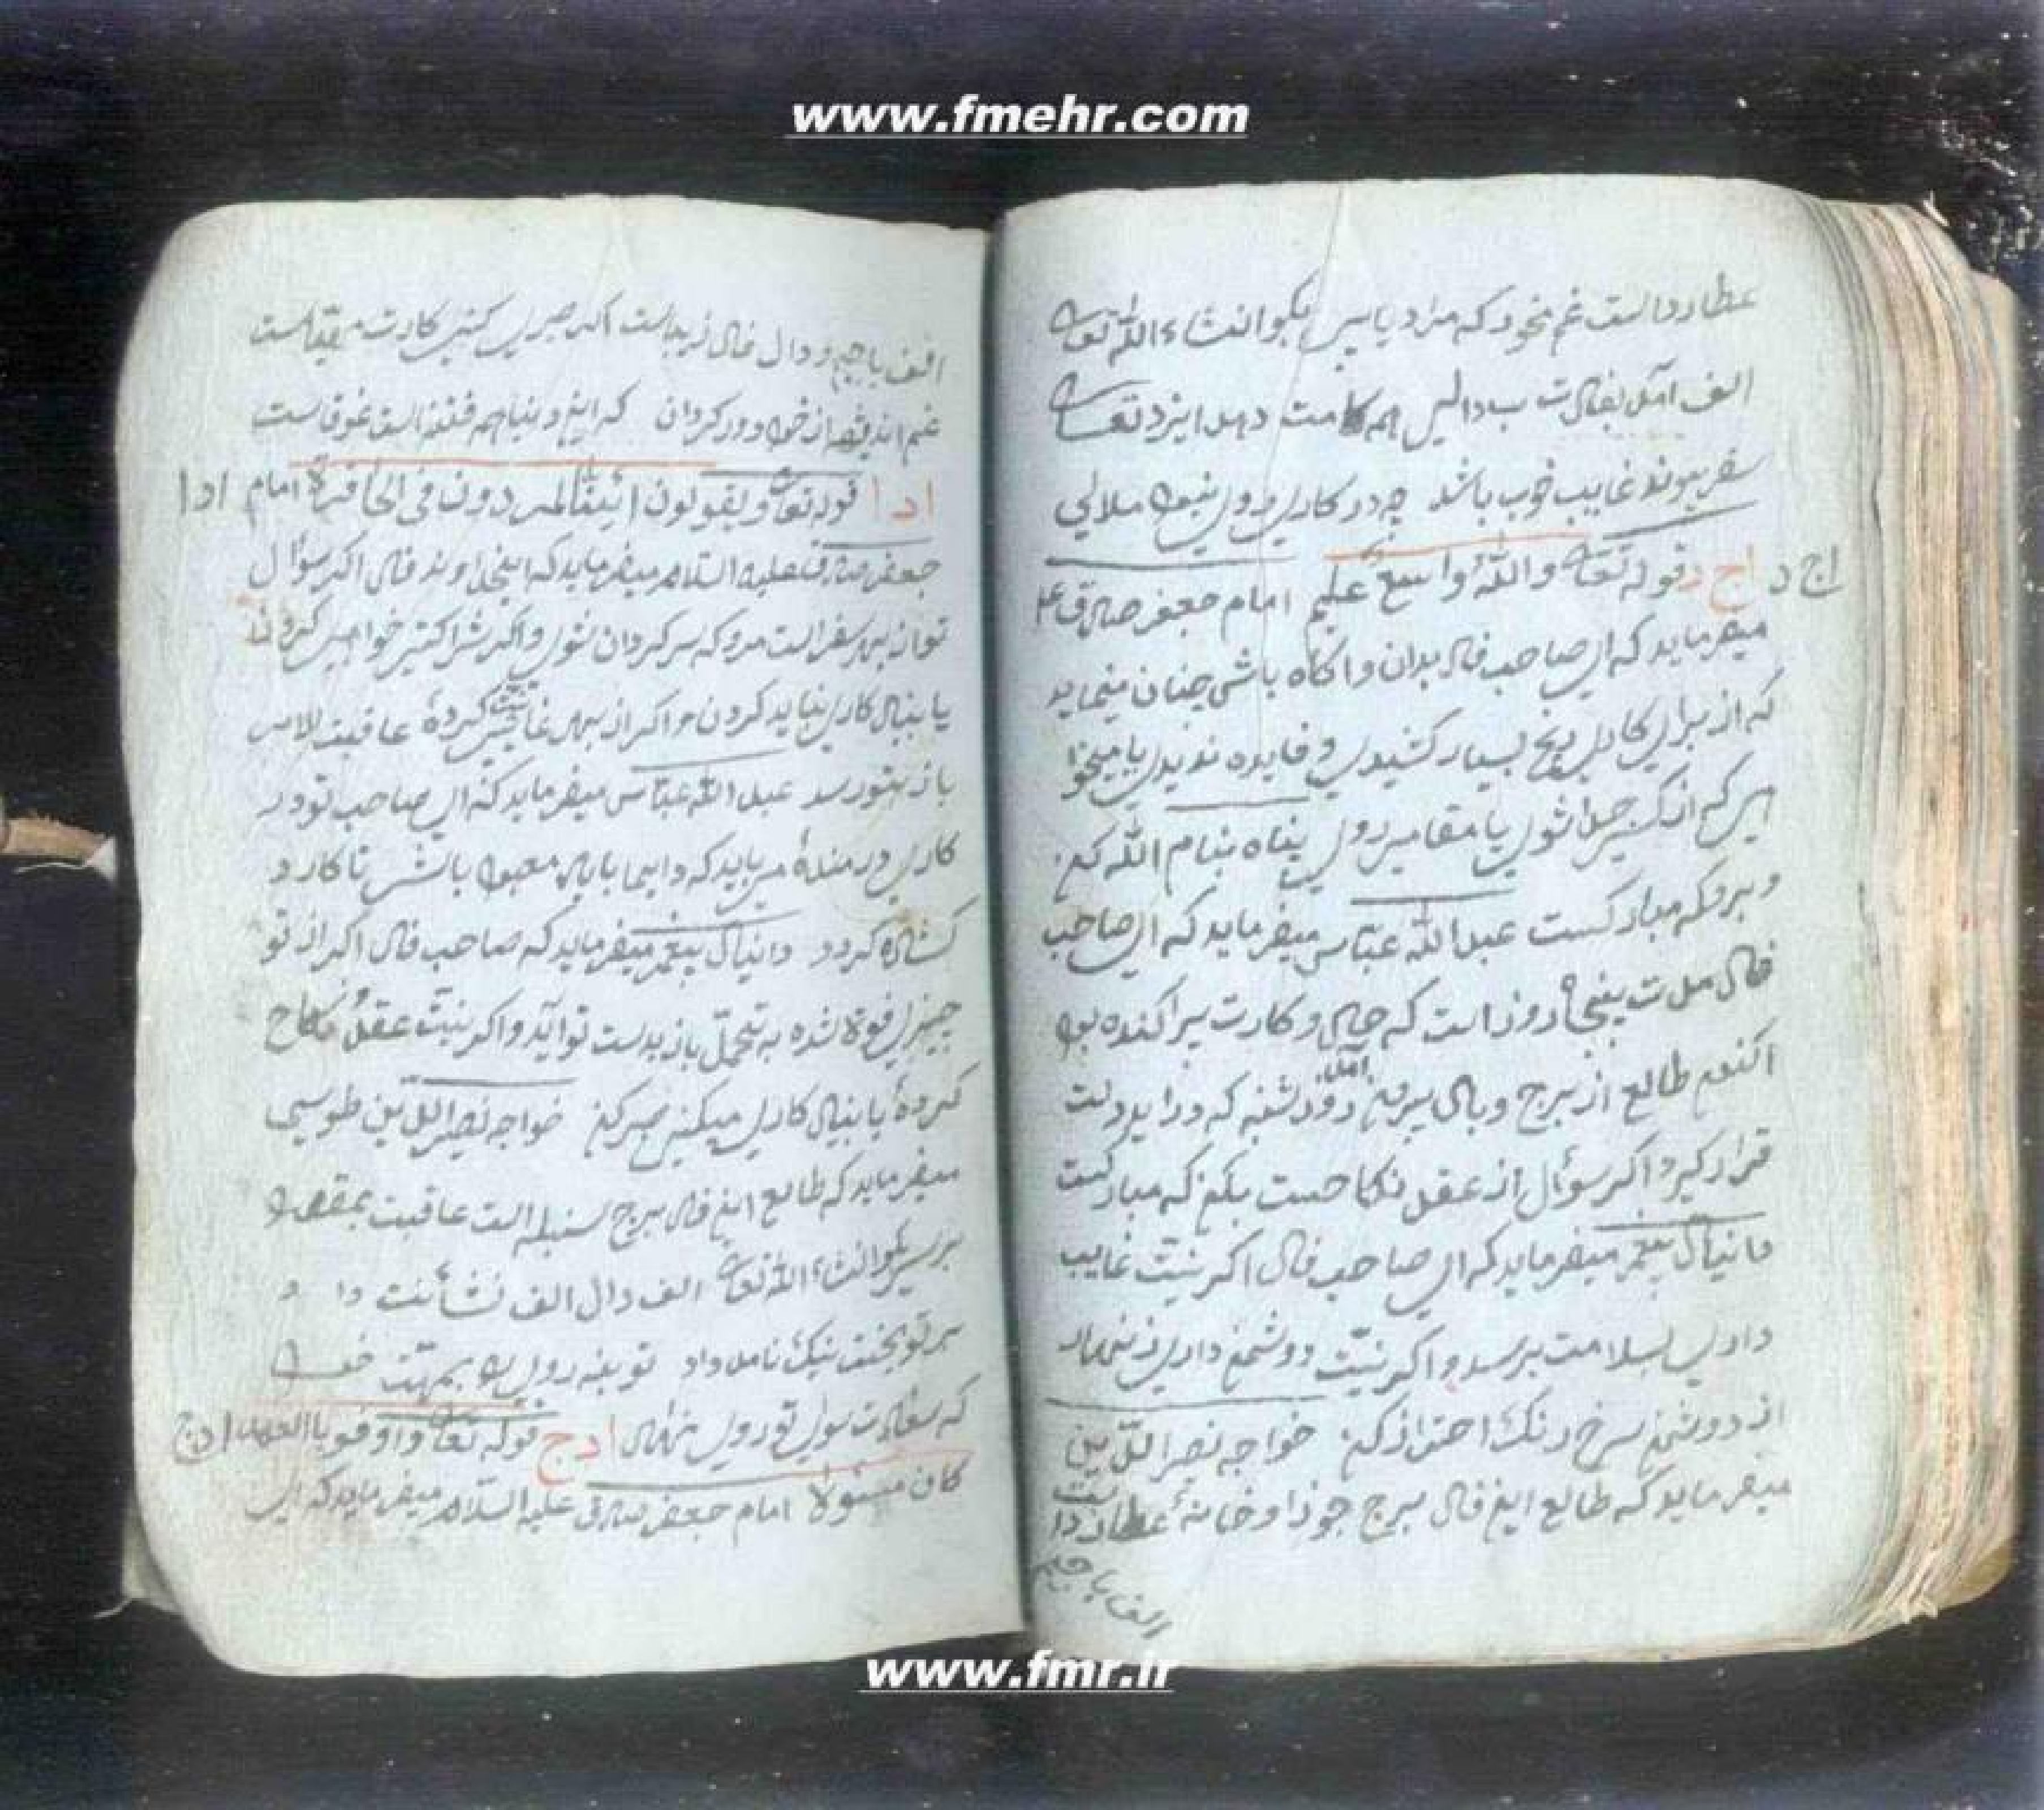 www.fmehr.com
عطارد است غم مخور که مراد یابی بکو انشاء الله تعالی
الف آمد بفالت بدالی همه کامت دهد ایزد تعالی
سفر غایب خوب باشد چه در کاری روی نبود ملالی
اج د اج د قوله تعالی والله واسع علیم امام جعفر صادق ع
میفرماید که ای صاحب فال بدان و اکاه باشی چنان مینماید
که از برای کاری رنج بسیار کشیدی و فایده ندیدی یا میخوا
هی که از کسی جدا شوی یا مقامی روی پناه بنام الله کن
و برو که مبارکست عبدالله عباس میفرماید که ای صاحب
فال مدت پنجاه روز است که و کارت پراکنده بود
اکنون طالع از برج وبال بیرون آمد روز شنبه که درآید دلت
قرار کیرد اکر سؤال از عقد نکاحست بکن که مبارکست
دانیال پیغمبر میفرماید که ای صاحب فال اکر نیت غایب
داری بسلامت برسد و اکر نیت دوشمن داری
از دوشمن سرخ رنک احتراز کن خواجه نصرالدین
میفرماید که طالع این فال برج جوزا و خانه عطارد است
الف با جیم
الف با جیم و دال فال اکر صبری کنی کارت است
غم اندیشه از خود دور کردان که این دنیا همه فتنه است
ادا قوله تعالی و یقولون ائنّا لمردودون فی الحافرة امام ادا
جعفر صادق علیه السلام میفرماید که ایخداوند فال اکر سؤال
تو از بهر سفر است مرو که سرکردان شوی و اکر شراکتی خواهی کردن
یا بنیاد کاری نباید کردن و اکر از بهر غایب نیت کردهٔ عاقبت الامر
باز بتو رسد عبدالله عباس میفرماید که ای صاحب تو در
کاری درمندهٔ میباید که معبود باشی تا کار
کشاده کردد دانیال پیغمبر میفرماید که صاحب فال اکر از تو
چیزی فوة شده به تحمل باز بدست تو آید و اکر نیت عقد نکاح
کردهٔ یا بنیاد کاری میکنی صبر کن خواجه نصرالدین طوسی
میفرماید که طالع این فال برج سنبله است عاقبت بمقصود
برسی بکو انشاء الله تعالی الف دال الف
بر تو بخت نیک
که سعادت بسوی تو روی نهاد ادج قوله تعالی و اوفوا بالعهد ادج
کان مسئولا امام جعفر صادق علیه السلام میفرماید که ای
www.fmr.ir